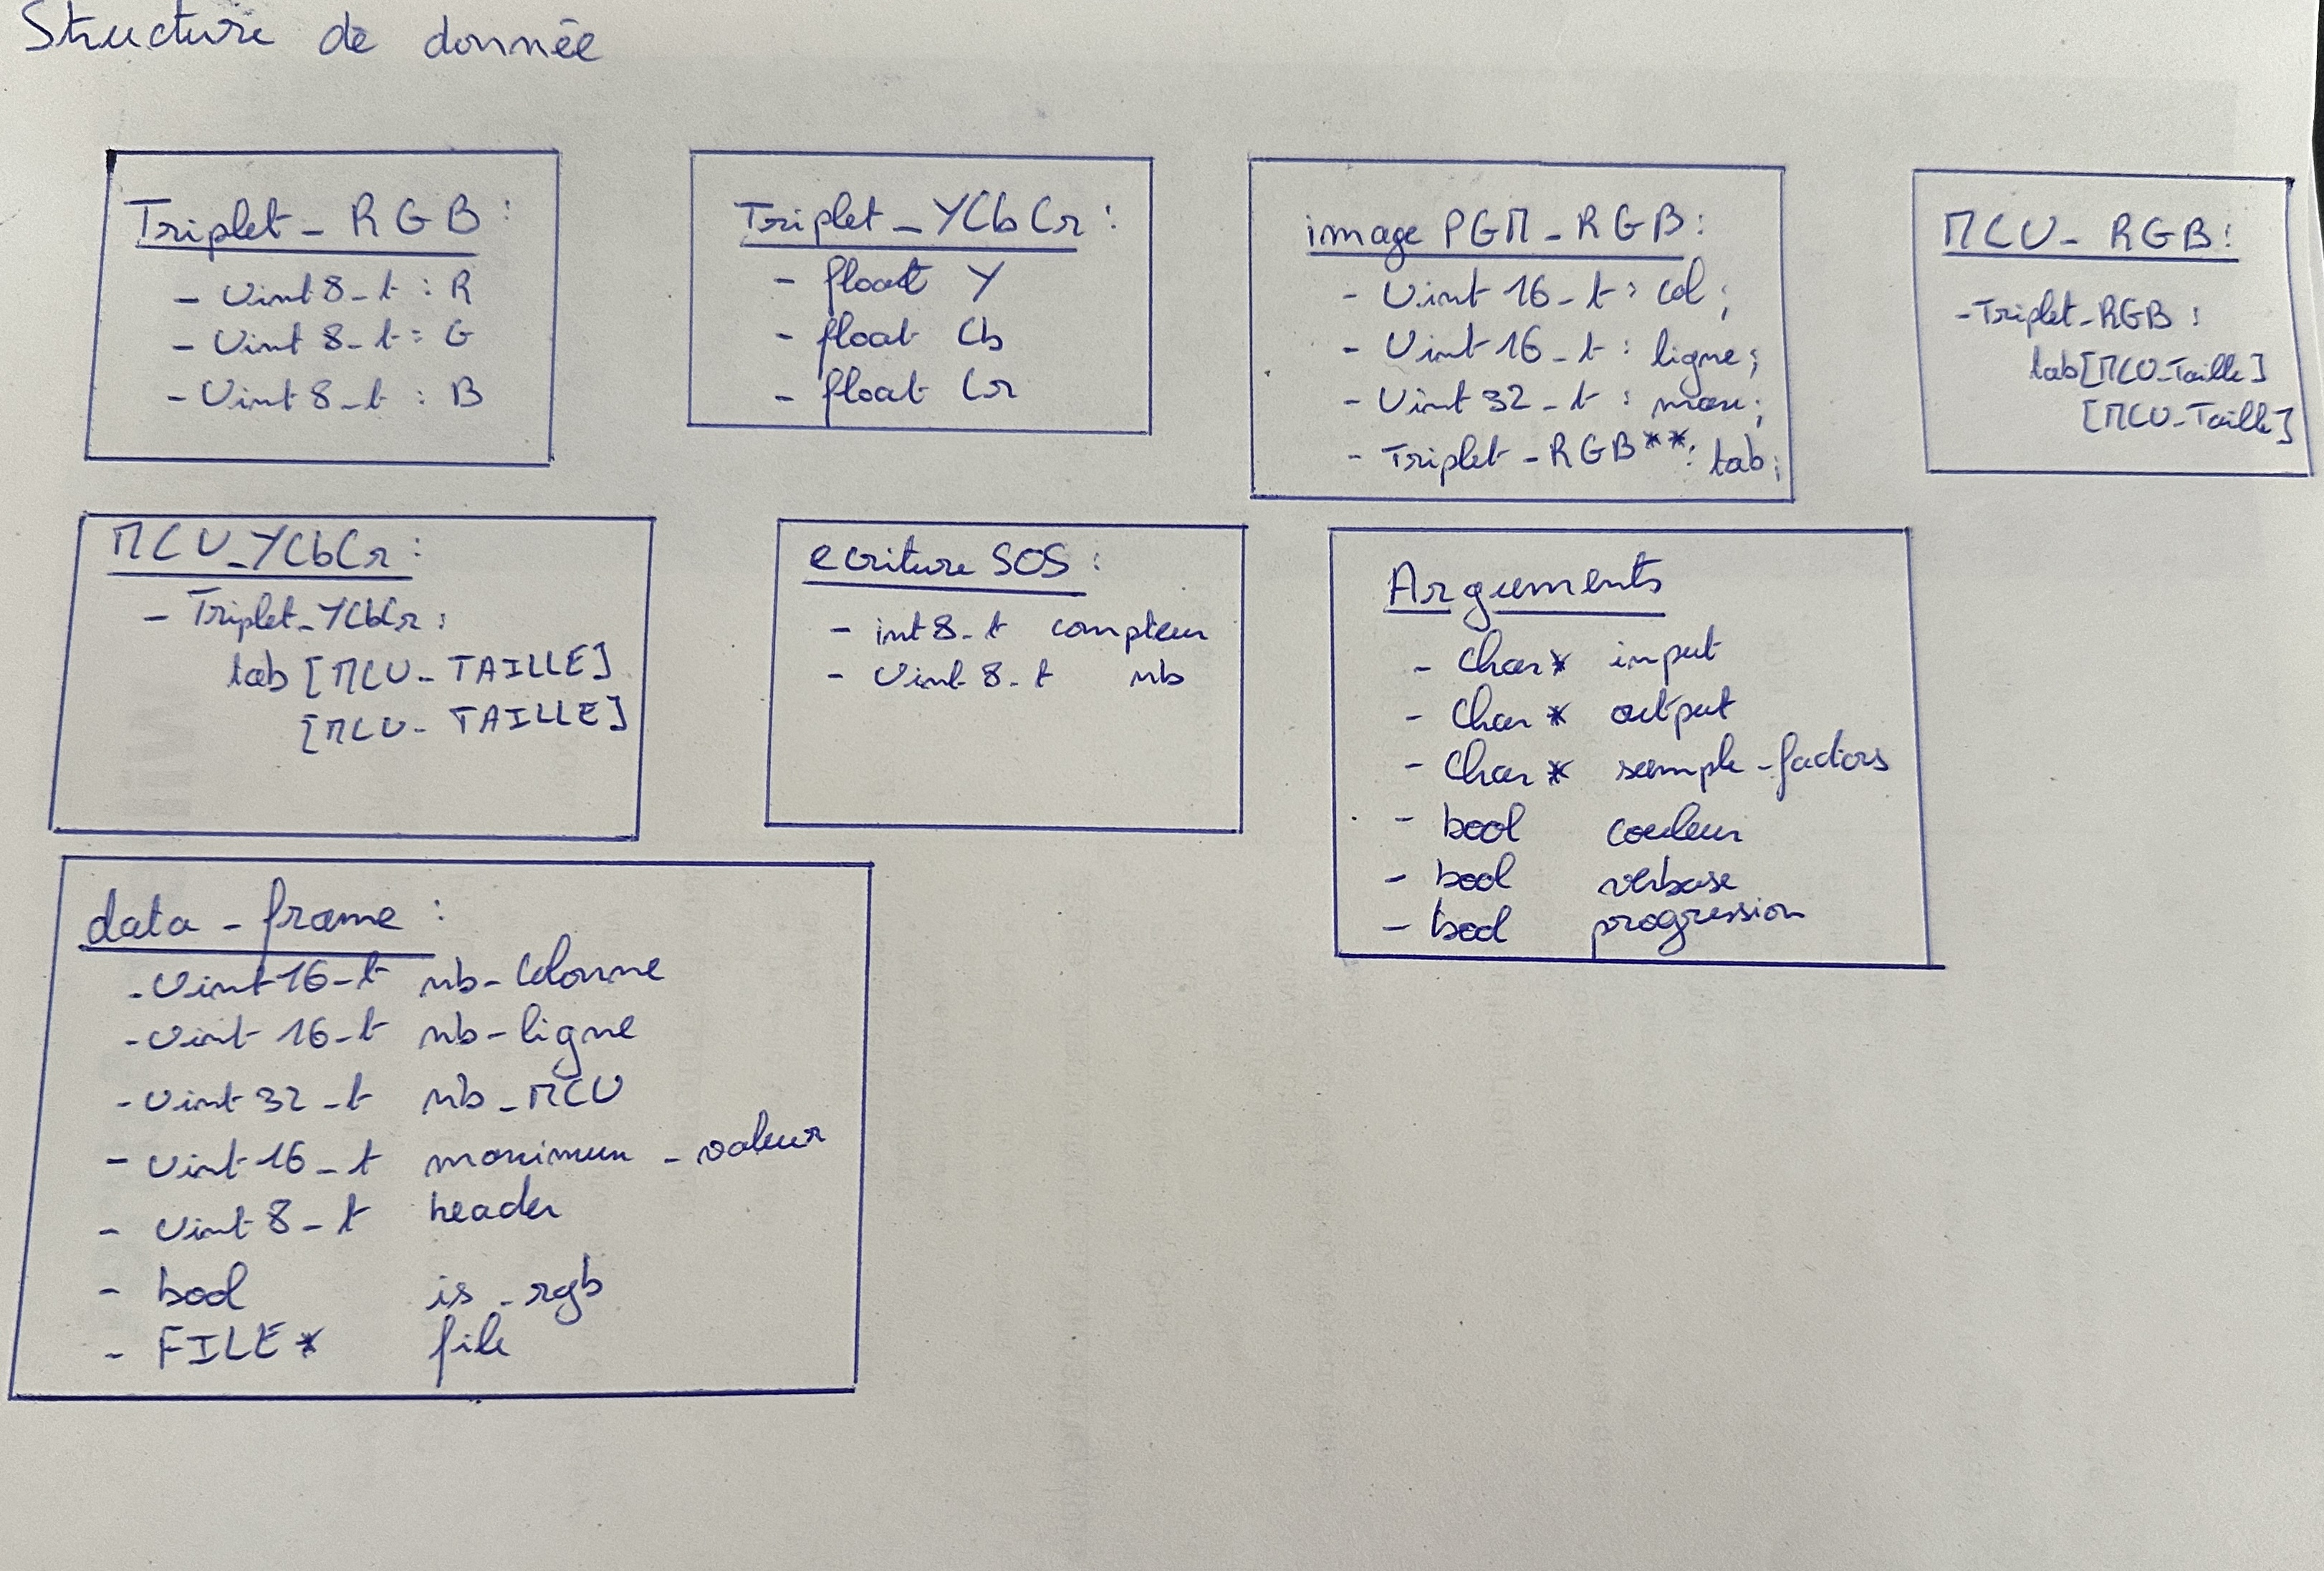 Structure de donnée
Triplet_RGB :
- Uint8_t : R
- Uint8_t : G
- Uint8_t : B
Triplet_YCbCr :
- float Y
- float Cb
- float Cr
image PGM_RGB :
- Uint16_t : col ;
- Uint16_t : ligne ;
- Uint32_t : max ;
- Triplet_RGB** : tab ;
MCU_RGB :
- Triplet_RGB :
tab[MCU_Taille]
[MCU_Taille]
MCU_YCbCr :
- Triplet_YCbCr :
tab [MCU_TAILLE]
[MCU_TAILLE]
ecriture SOS :
- int8_t compteur
- Uint8_t nb
Arguments
- Char* input
- Char* output
- Char* sample_factors
- bool couleur
- bool verbose
- bool progression
data_frame :
- Uint16_t nb_Colonne
- Uint16_t nb_ligne
- Uint32_t nb_MCU
- Uint16_t maximum_valeur
- Uint8_t header
- bool is_rgb
- FILE* file